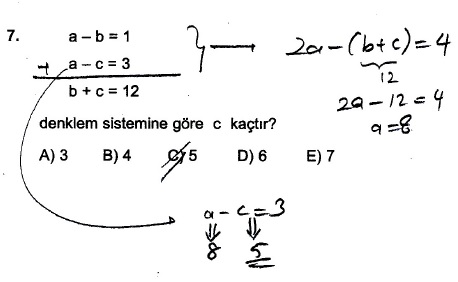 7. a – b = 1
+ a – c = 3
b + c = 12
2a – (b+c) = 4
12
2a – 12 = 4
a = 8
denklem sistemine göre c kaçtır?
A) 3 B) 4 C) 5 D) 6 E) 7
a – c = 3
8 5